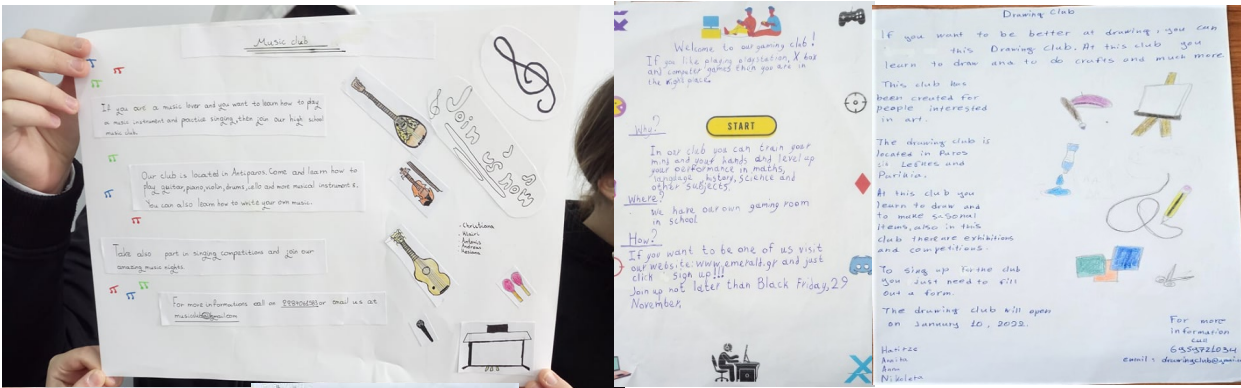 Music club
If you are a music lover and you want to learn how to play
a music instrument and practise singing, then join our high school
music club.
Our club is located in Antiparos. Come and learn how to
play guitar, piano, violin, drums, cello and more musical instruments.
You can also learn how to write your own music.
Take also part in singing competitions and join our
amazing music nights.
For more informations call on or email us at
Join us now
- Christiana
Antonis
Welcome to our gaming club!
If you like playing playstation, X box
and computer games then you are in
the right place.
START
Why?
In our club you can train your
mind and your hands and level up
your performance in maths,
language, history, science and
other subjects.
Where?
We have our own gaming room
in school
How?
If you want to be one of us visit
our website: www.emerald.gr and just
click sign up!!!
Join up not later than Black Friday, 29
November.
Drawing Club
If you want to be better at drawing, you can
this Drawing Club. At this club you
learn to draw and to do crafts and much more.
This club has
been created for
people interested
in art.
The drawing club is
located in Paros
in Lefkes and
Parikia.
At this club you
learn to draw and
to make sisonal
items, also in this
club there are exhibitions
and competitions.
To sing up for the club
you Just need to fill
out a form.
The drawing club will open
on January 10, 2022.
Anna
Nikoleta
For more
information
call
6959721034
email: